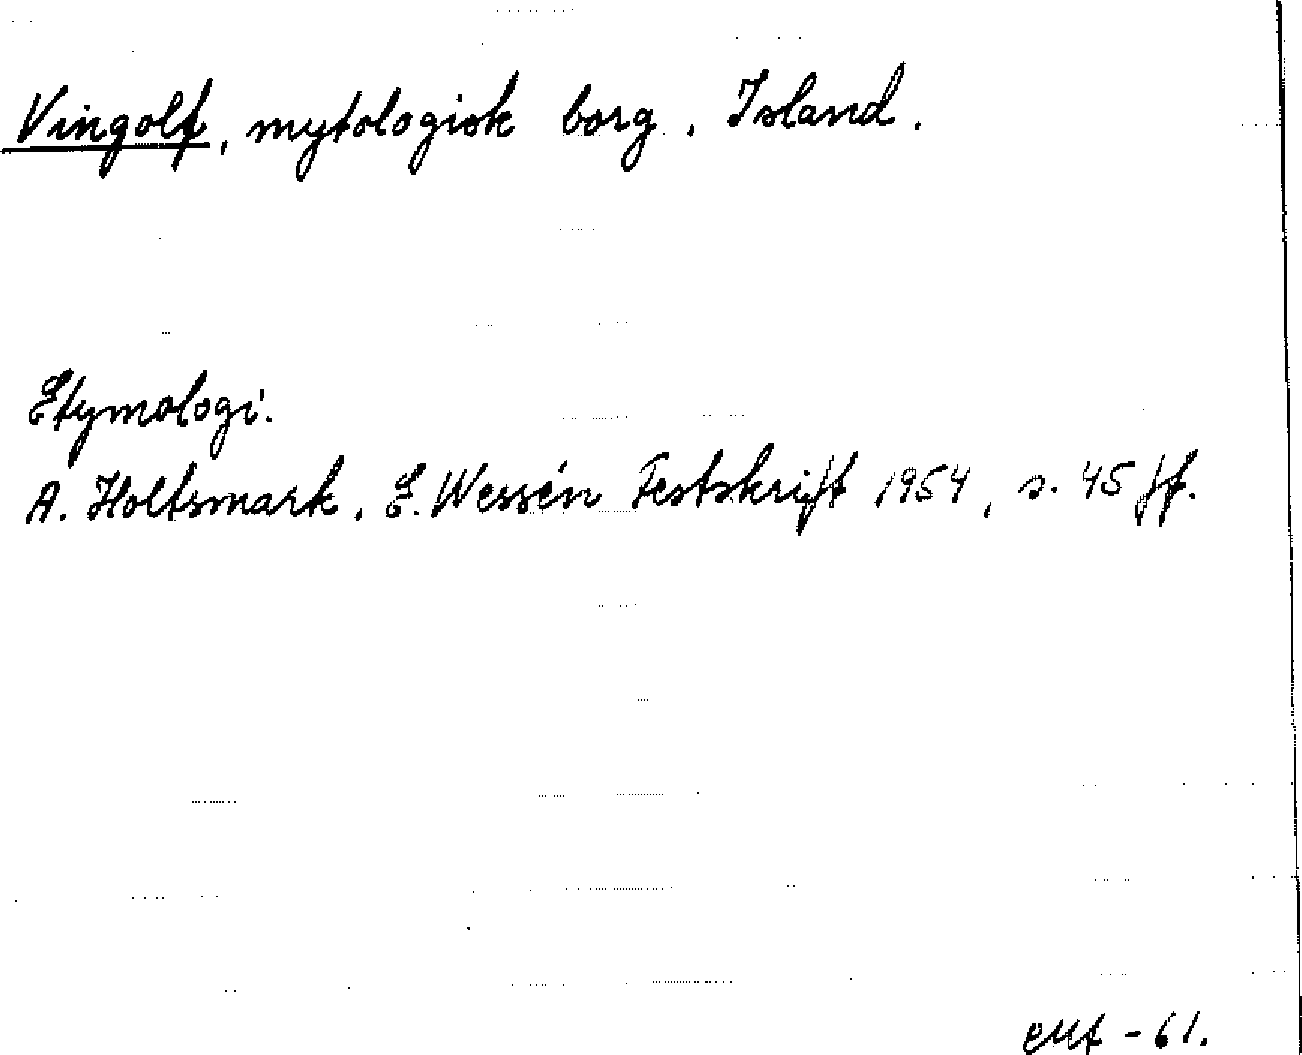 Vingolf, mytologisk borg, Island.
Etymologi.
A. Holtsmark, E. Wessén Festskrift 1954, s. 45 ff.
-61.